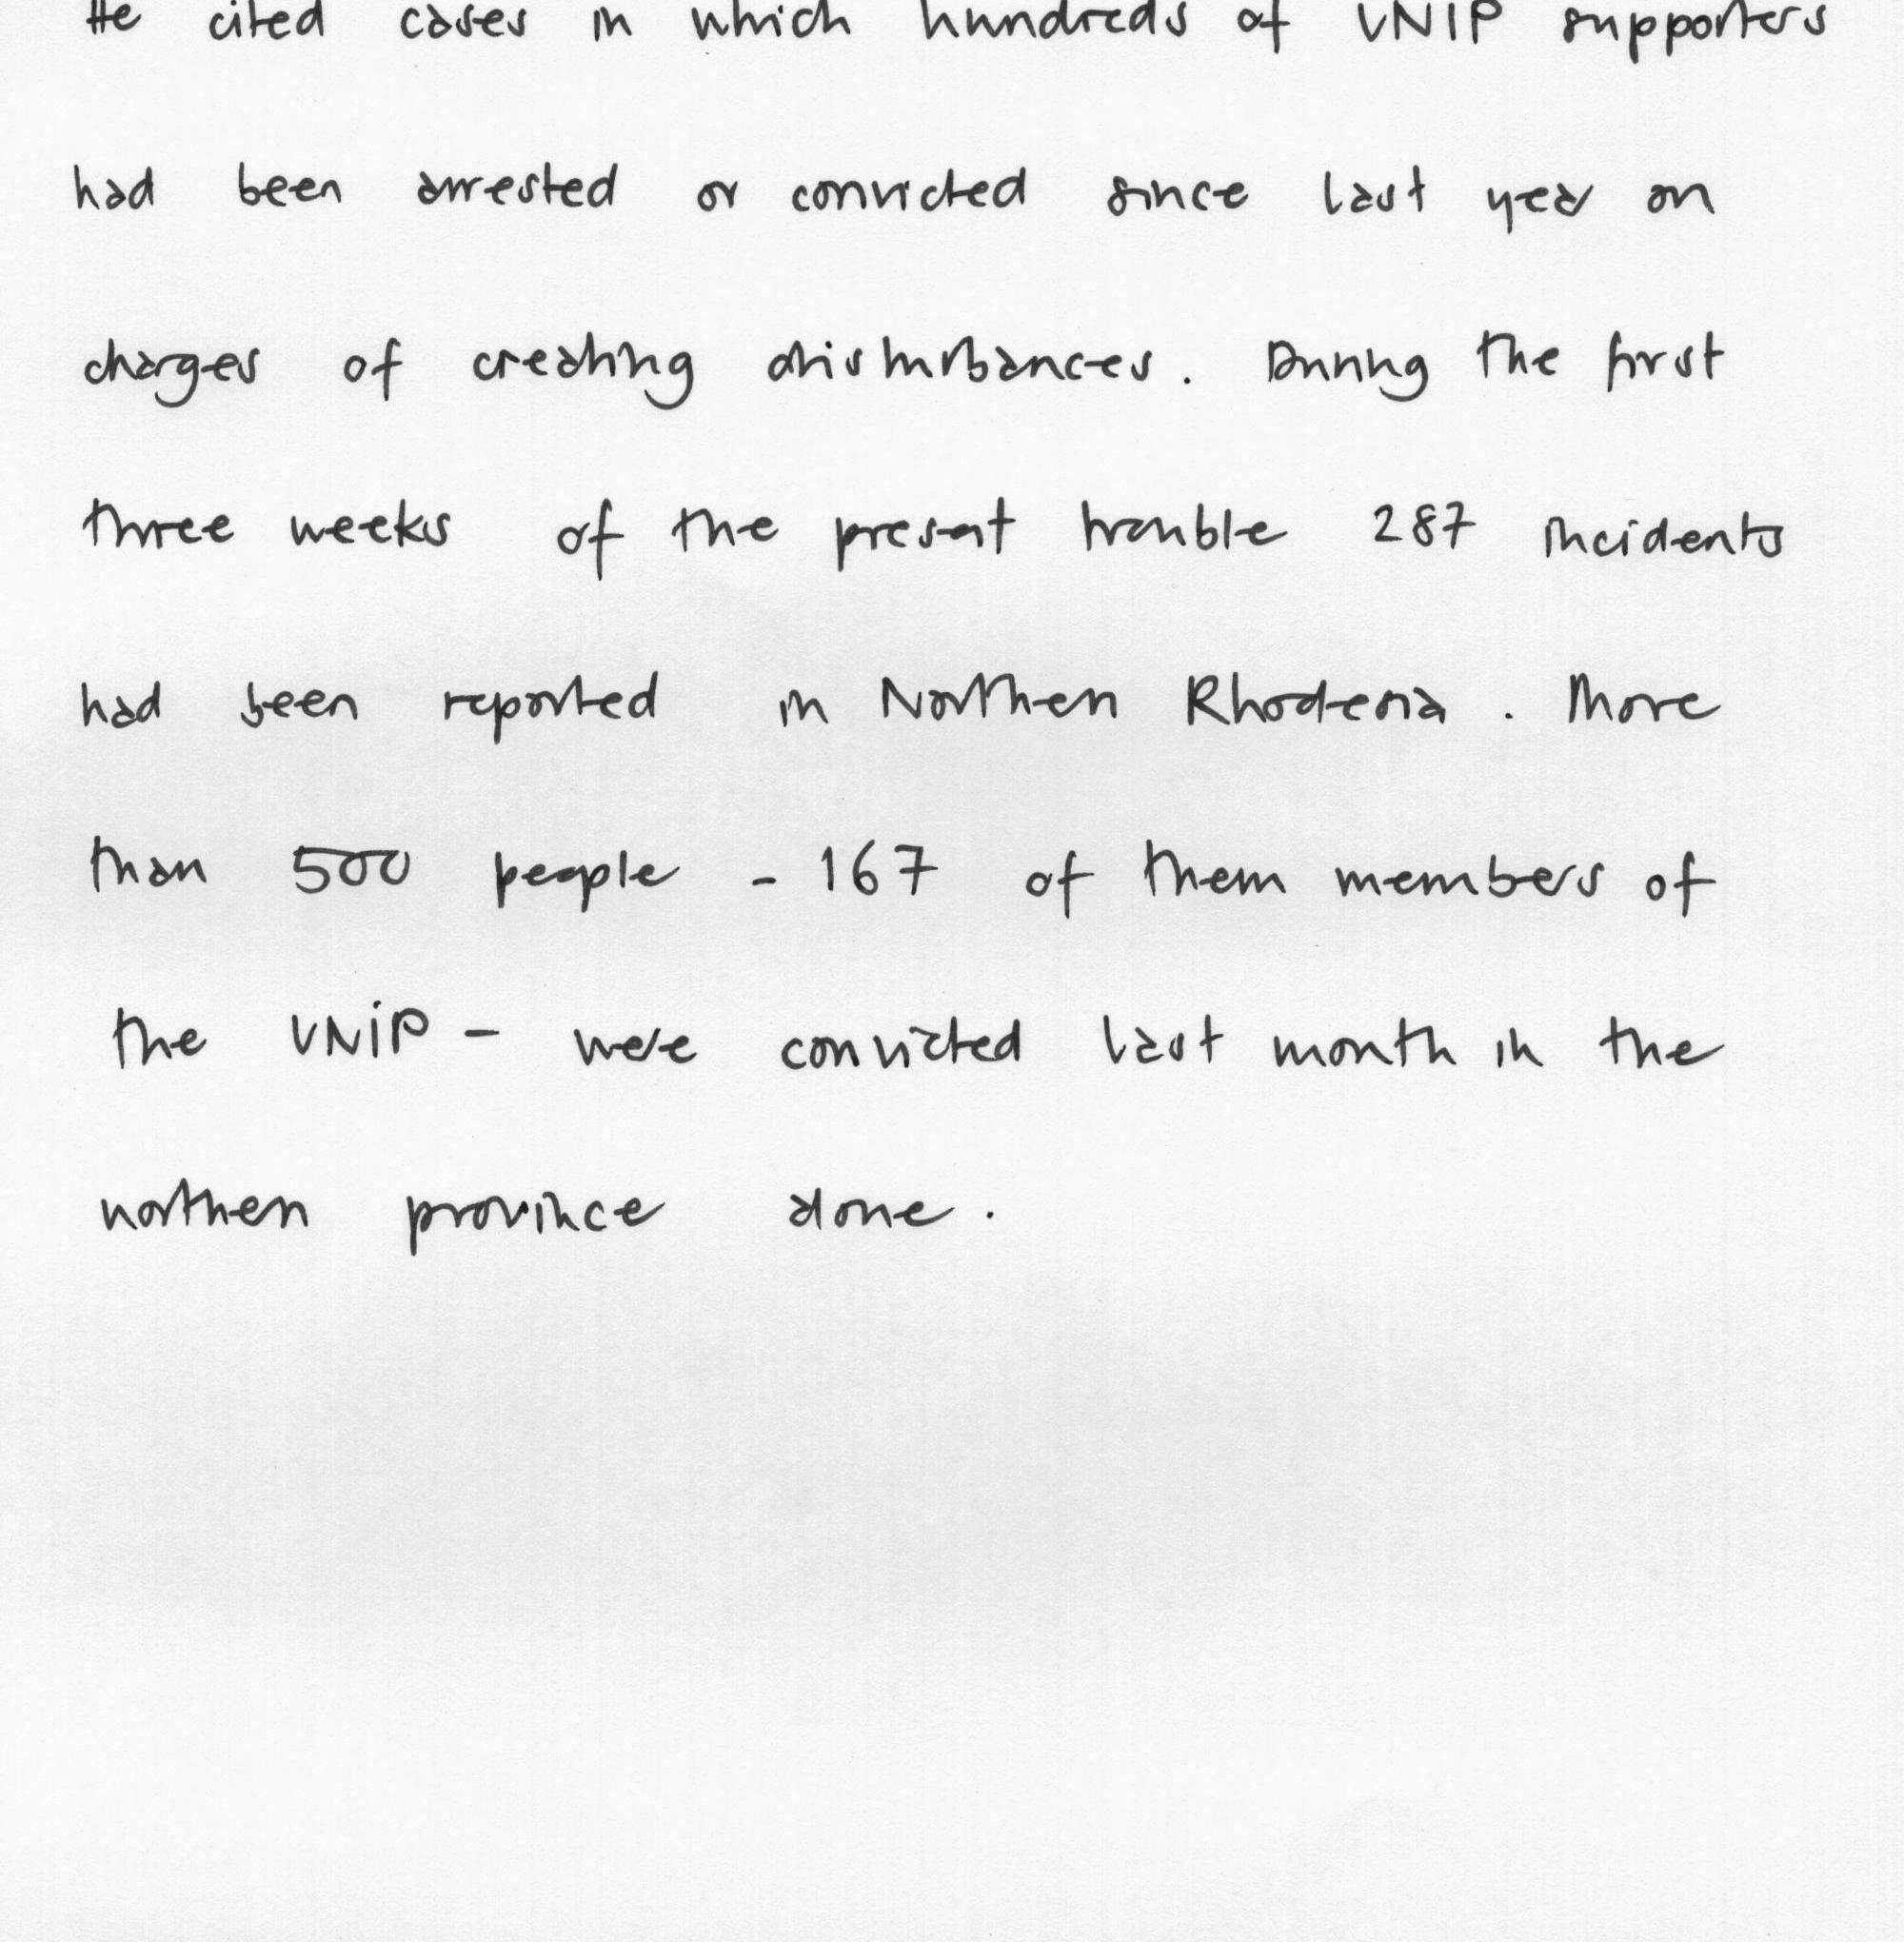 He cited cases in which hundreds of UNIP supporters
had been arrested or convicted since last year on
charges of creating disturbances. During the first
three weeks of the present trouble 287 incidents
had been reported in Northen Rhodesia. More
than 500 people - 167 of them members of
the UNIP - were convicted last month in the
northen province alone.